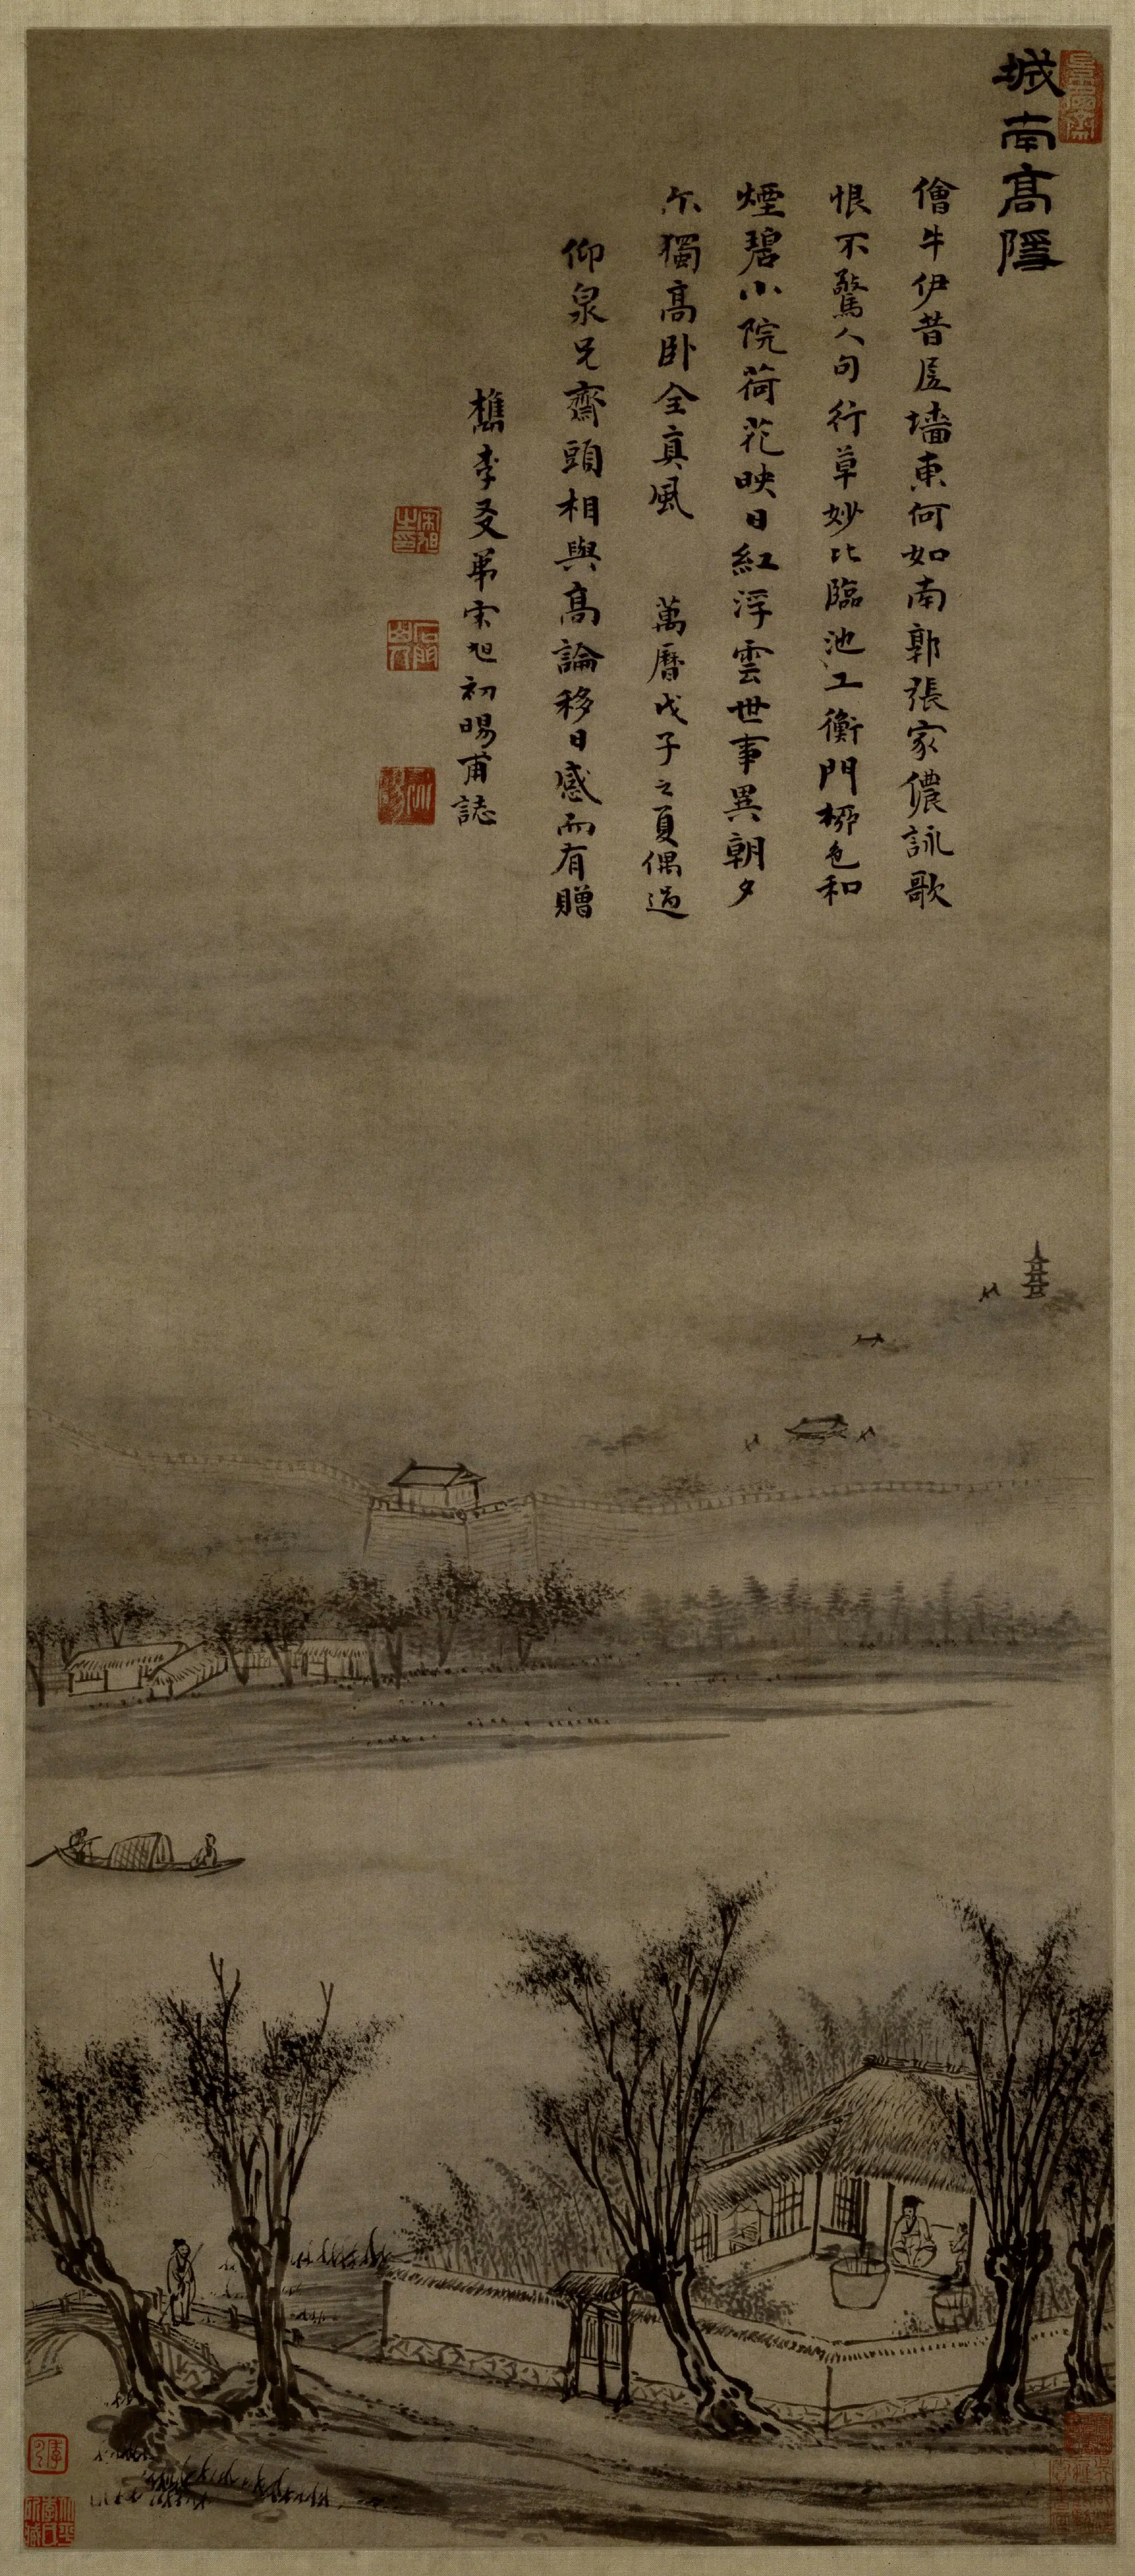 城南高隱
儈牛伊昔居墻東何如南郭張家儂詠歌
恨不驚人句行草妙比臨池工衡門栁色和
煙碧小院荷花映日紅浮雲世事異朝夕
尔獨高臥全真風　萬曆戊子之夏偶過
仰泉兄齋頭相與高論移日感而有贈
檇李友弟宋旭初暘甫誌
宋旭之印
石門山人
初暘